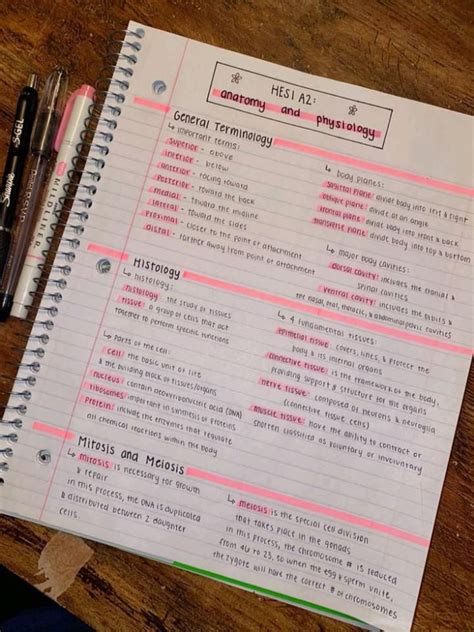 HESI A2:
anatomy and physiology
General Terminology
↳ important terms:
superior - above
inferior - below
anterior - facing toward
posterior - toward the back
medial - toward the midline
lateral - toward the sides
proximal - closer to the point of attachment
distal - farther away from point of attachment
↳ body planes:
sagittal plane: divide body into left & right
oblique plane: divide at an angle
frontal plane: divide body into front & back
transverse plane: divide body into top & bottom
↳ major body cavities:
dorsal cavity: includes the cranial &
spinal cavities
ventral cavity: includes the orbits &
the nasal, oral, thoracic, & abdominal pelvic cavities
Histology
↳ histology:
histology: the study of tissues
tissue: a group of cells that act
together to perform specific functions
↳ parts of the cell:
cell: the basic unit of life
& the building block of tissues/organs
nucleus: contain deoxyribonucleic acid (DNA)
ribosomes: important in synthesis of proteins
protein: include the enzymes that regulate
all chemical reactions within the body
↳ 4 fundamental tissues:
epithelial tissue: covers, lines, & protect the
body & its internal organs
connective tissue: is the framework of the body,
providing support & structure for the organs
nerve tissue: composed of neurons & neuroglia
(connective tissue cells)
muscle tissue: have the ability to contract or
shorten classified as voluntary or involuntary
Mitosis and Meiosis
↳ mitosis is necessary for growth
& repair
in this process, the DNA is duplicated
& distributed between 2 daughter
cells.
↳ meiosis is the special cell division
that takes place in the gonads
in this process, the chromosome # is reduced
from 46 to 23, so when the egg & sperm unite,
the zygote will have the correct # of chromosomes
Sharpie S-GEL
MILDLINER